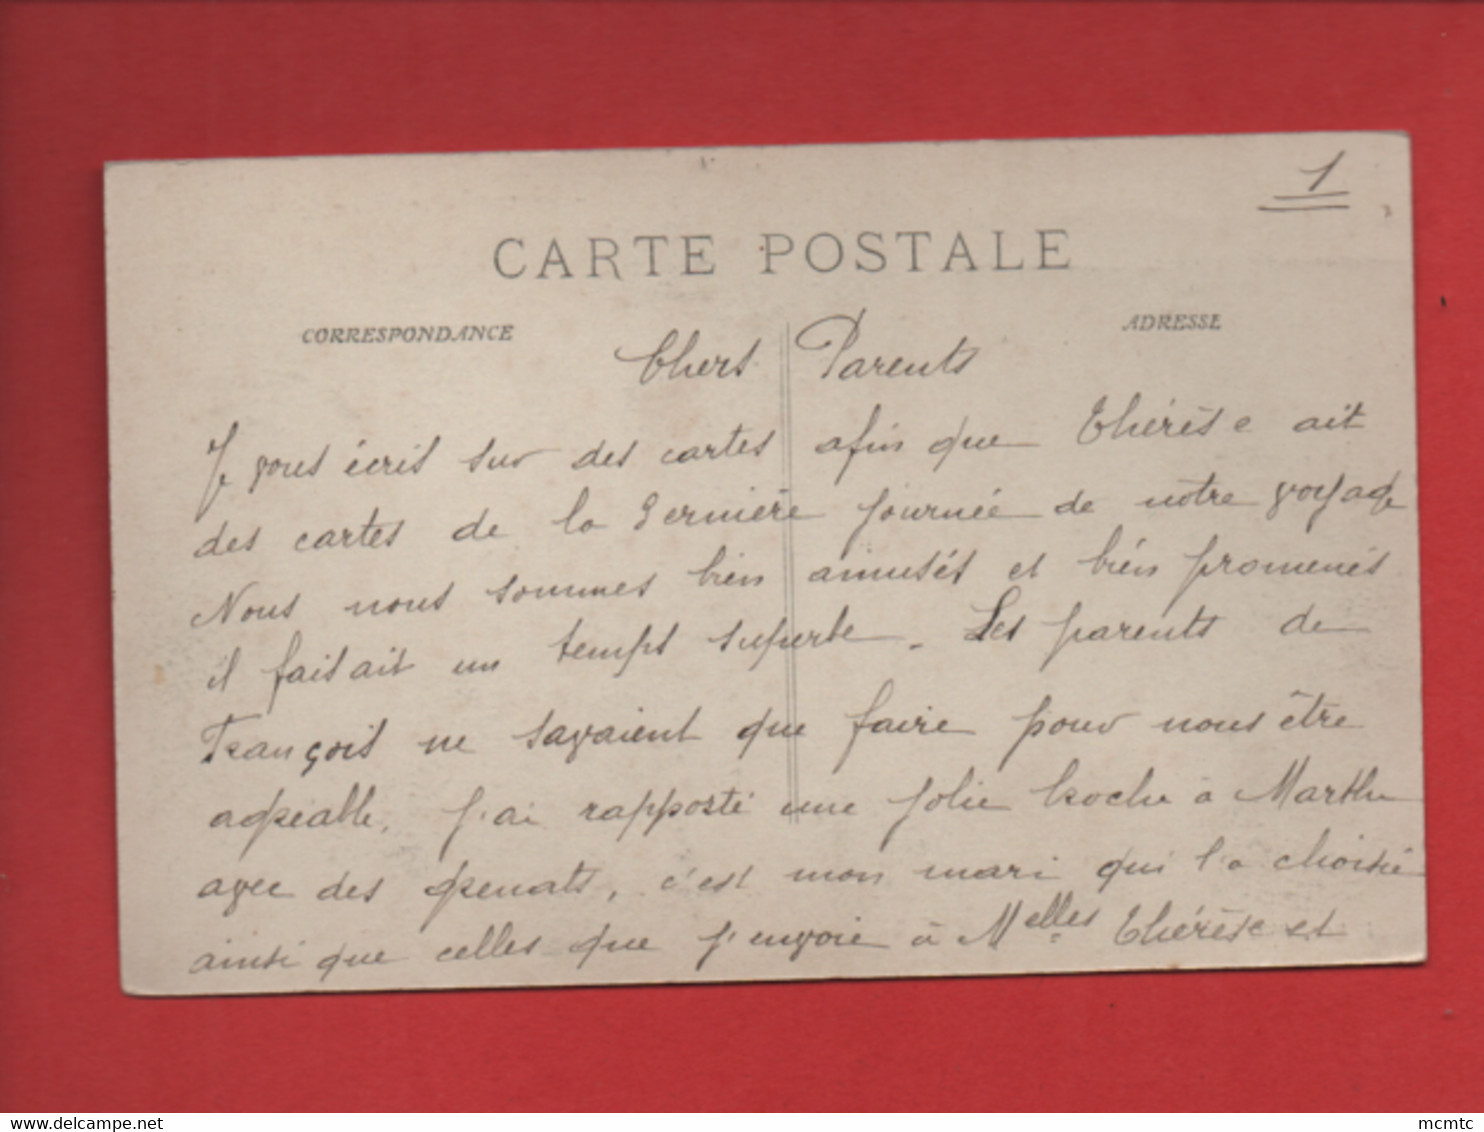 1
CARTE POSTALE
CORRESPONDANCE
ADRESSE
Chers Parents
Je vous écris sur des cartes afin que Thérèse ait
des cartes de la dernière journée de notre voyage
Nous nous sommes bien amusés et bien promenés
il faisait un temps superbe. Les parents de
François ne savaient que faire pour nous être
agréable. J'ai rapporté une jolie broche à Marthe
avec des grenats, c'est mon mari qui l'a choisie
ainsi que celles que j'envoie à Melles Thérèse et
mcmtc